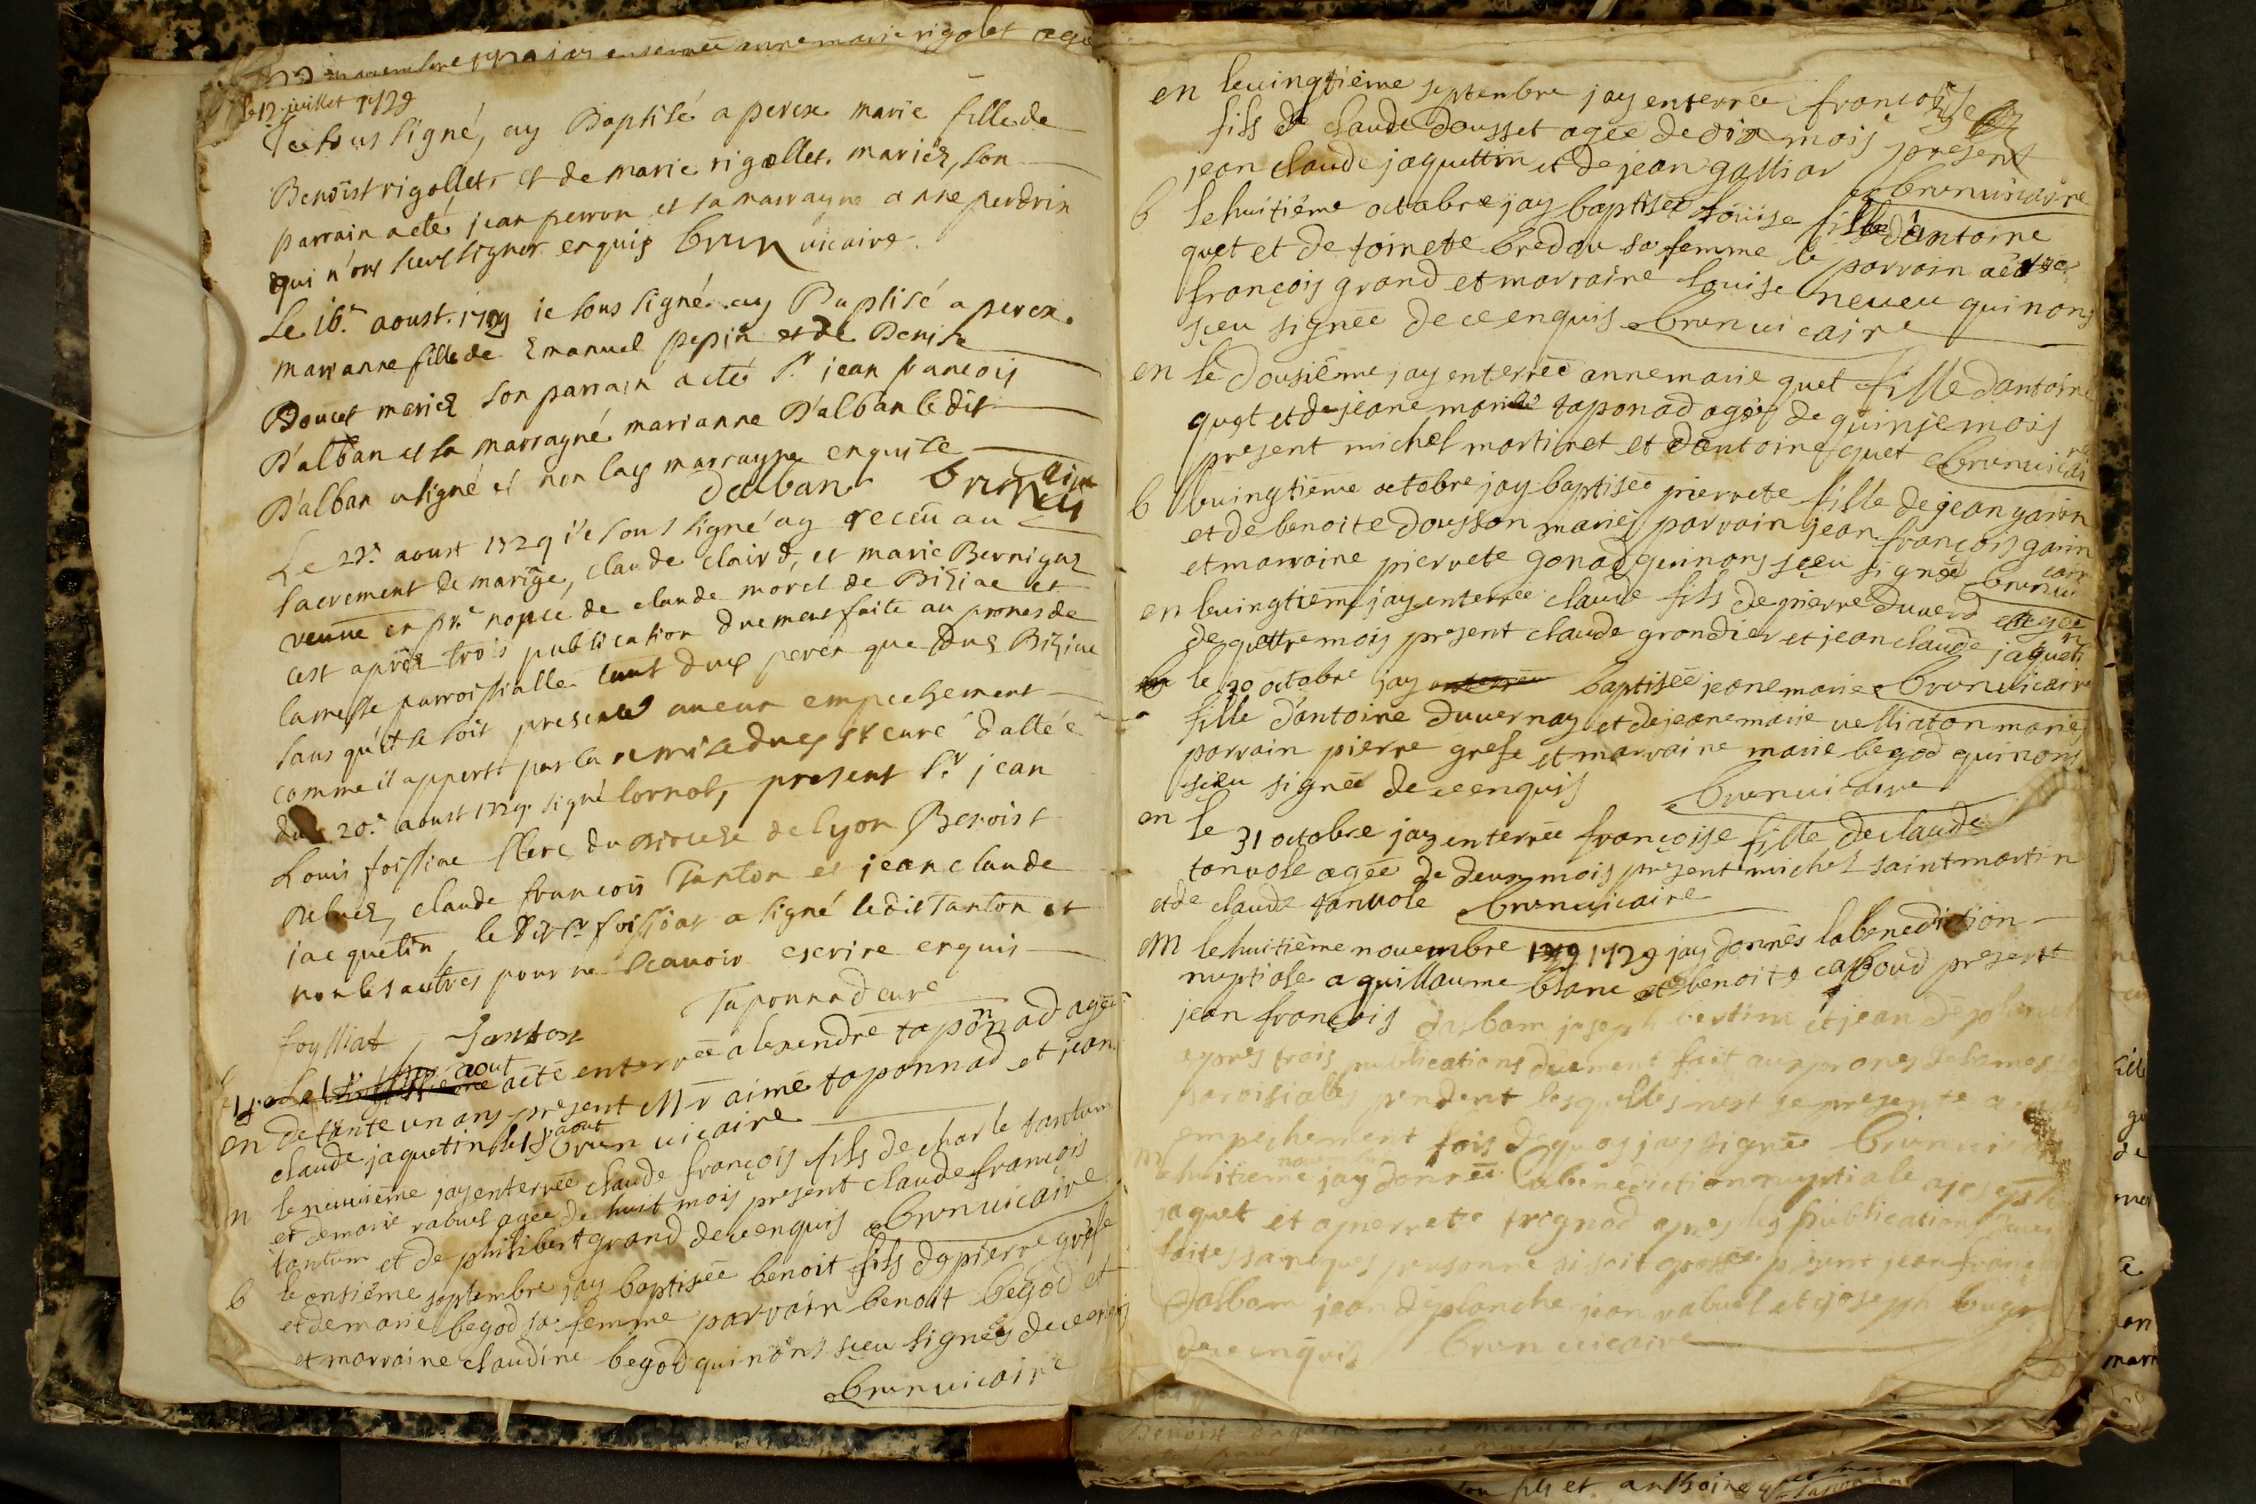 novembre 1729 jay enterrée anne marie rigolet agé
le 12 juillet 1729
Je sous signé, ay Baptisé a perex marie fille de
Benoist rigollet, et de marie rigollet mariez, son
parrain a eté jean perron et sa marrayne anne perdrix
qui n'ont sceu signer enquis brun vicaire
Le 16.e aoust 1729 ie sous signé ay Baptisé a perex
marianne fille de Emanuel pepin et de Denise
Doucet mariez son parrain a eté S.r jean francois
D'alban et sa marrayne marianne D'alban ledit
D'alban a signé et non lad marrayne enquise
dalban brun vicaire
Le 23.e aoust 1729 ie sous signé ay receu au
sacrement de mariage, claude clair d, et marie Bernigaz
veuve en pr.e nopce de claude morel de Biziac et
cest aprez trois publication duement faite au prones de
la messe parroissialle tant dud perex que dud Biziac
sans qu'il se soit presenté aucun empechement
comme il appert par la remise dud Sr curé dattée
du 20.e aoust 1729 signé lornot, present S.r jean
Louis foissiac Clerc du diocese de lyon Benoist
Rebuez, claude francois Tanton et jean claude
jacquetin, ledit S.r foissiat a signé ledit Tanton et
non les autres pour ne scavoir escrire enquis
foyssiat Tanton Taponnad curé
aout a eté enterrée alexendre taponnad agée
en de tante un ans present Mr aimé taponnad et jean
claude jaquetin le 15 aout brun vicaire
en le neuvième jay enterrée claude françois fils de charle tantum
et de marie rabuel agée de huit mois present claude françois
tantum et de philibert grand de ce enquis brun vicaire
b le onsième septembre jay baptisée benoit fils de pierre grefe
et de marie begod sa femme parrain benoit begod et
et marraine claudine begod qui nons sçeu signés de ce enquis
brun vicaire
en le vingtième septembre jay enterrée françoise
fils de claude dousset agée de dix mois present
jean claude jaquettin et de jean galliar
brun vicaire
b le huitième octobre jay baptisée Louise fille d'antoine
quet et de toinette bredou sa femme le parrain a eté
françois grand et marraine Louise neveu qui nons
sçeu signée de ce enquis brun vicaire
en le dousième jay enterrée anne marie quet fille dantoine
quet et de jeane marie taponad agée de quinje mois
present michel martinet et dantoine quet brun vicaire
b le vingtième octobre jay baptisée pierrete fille de jean garin
et de benoite dousson mariés parrain jean françois garin
et marraine pierrete gonad qui nons sçeu signée brun vicaire
en le vingtième jay enterrée claude fils de pierre duverd agée
de quattre mois present claude grandier et jean claude jaquetin
le 30 octobre jay baptisée jeane marie brun vicaire
fille d'antoine duvernay et de jeane marie velliaton mariés
parrain pierre grefe et marraine marie begod qui nons
sçeu signée de ce enquis brun vicaire
en le 31 octobre jay enterrée françoise fille de claude
tanvole agée de deux mois present michel saint martin
et de claude tanvole brun vicaire
M le huitième novembre 1729 jay donnés la benediction
nuptiale a guillaume blanc et benoite carboud present
jean françois dalbam joseph et jean déplanche
apres trois publications duement fait aux prones de la messe
paroisialles pendent lesquelles nest se presente aucun
empechement fois dequoy jay signée brun vicaire
m le huitieme novembre jay donnée la benediction nuptiale a joseph
jaquet et a pierrete trignod apres les publications
faites sans que personne si soit present jean françois
dalbam jean déplanche jean rabuel et joseph
de ce enquis brun vicaire
son fils et anthoine